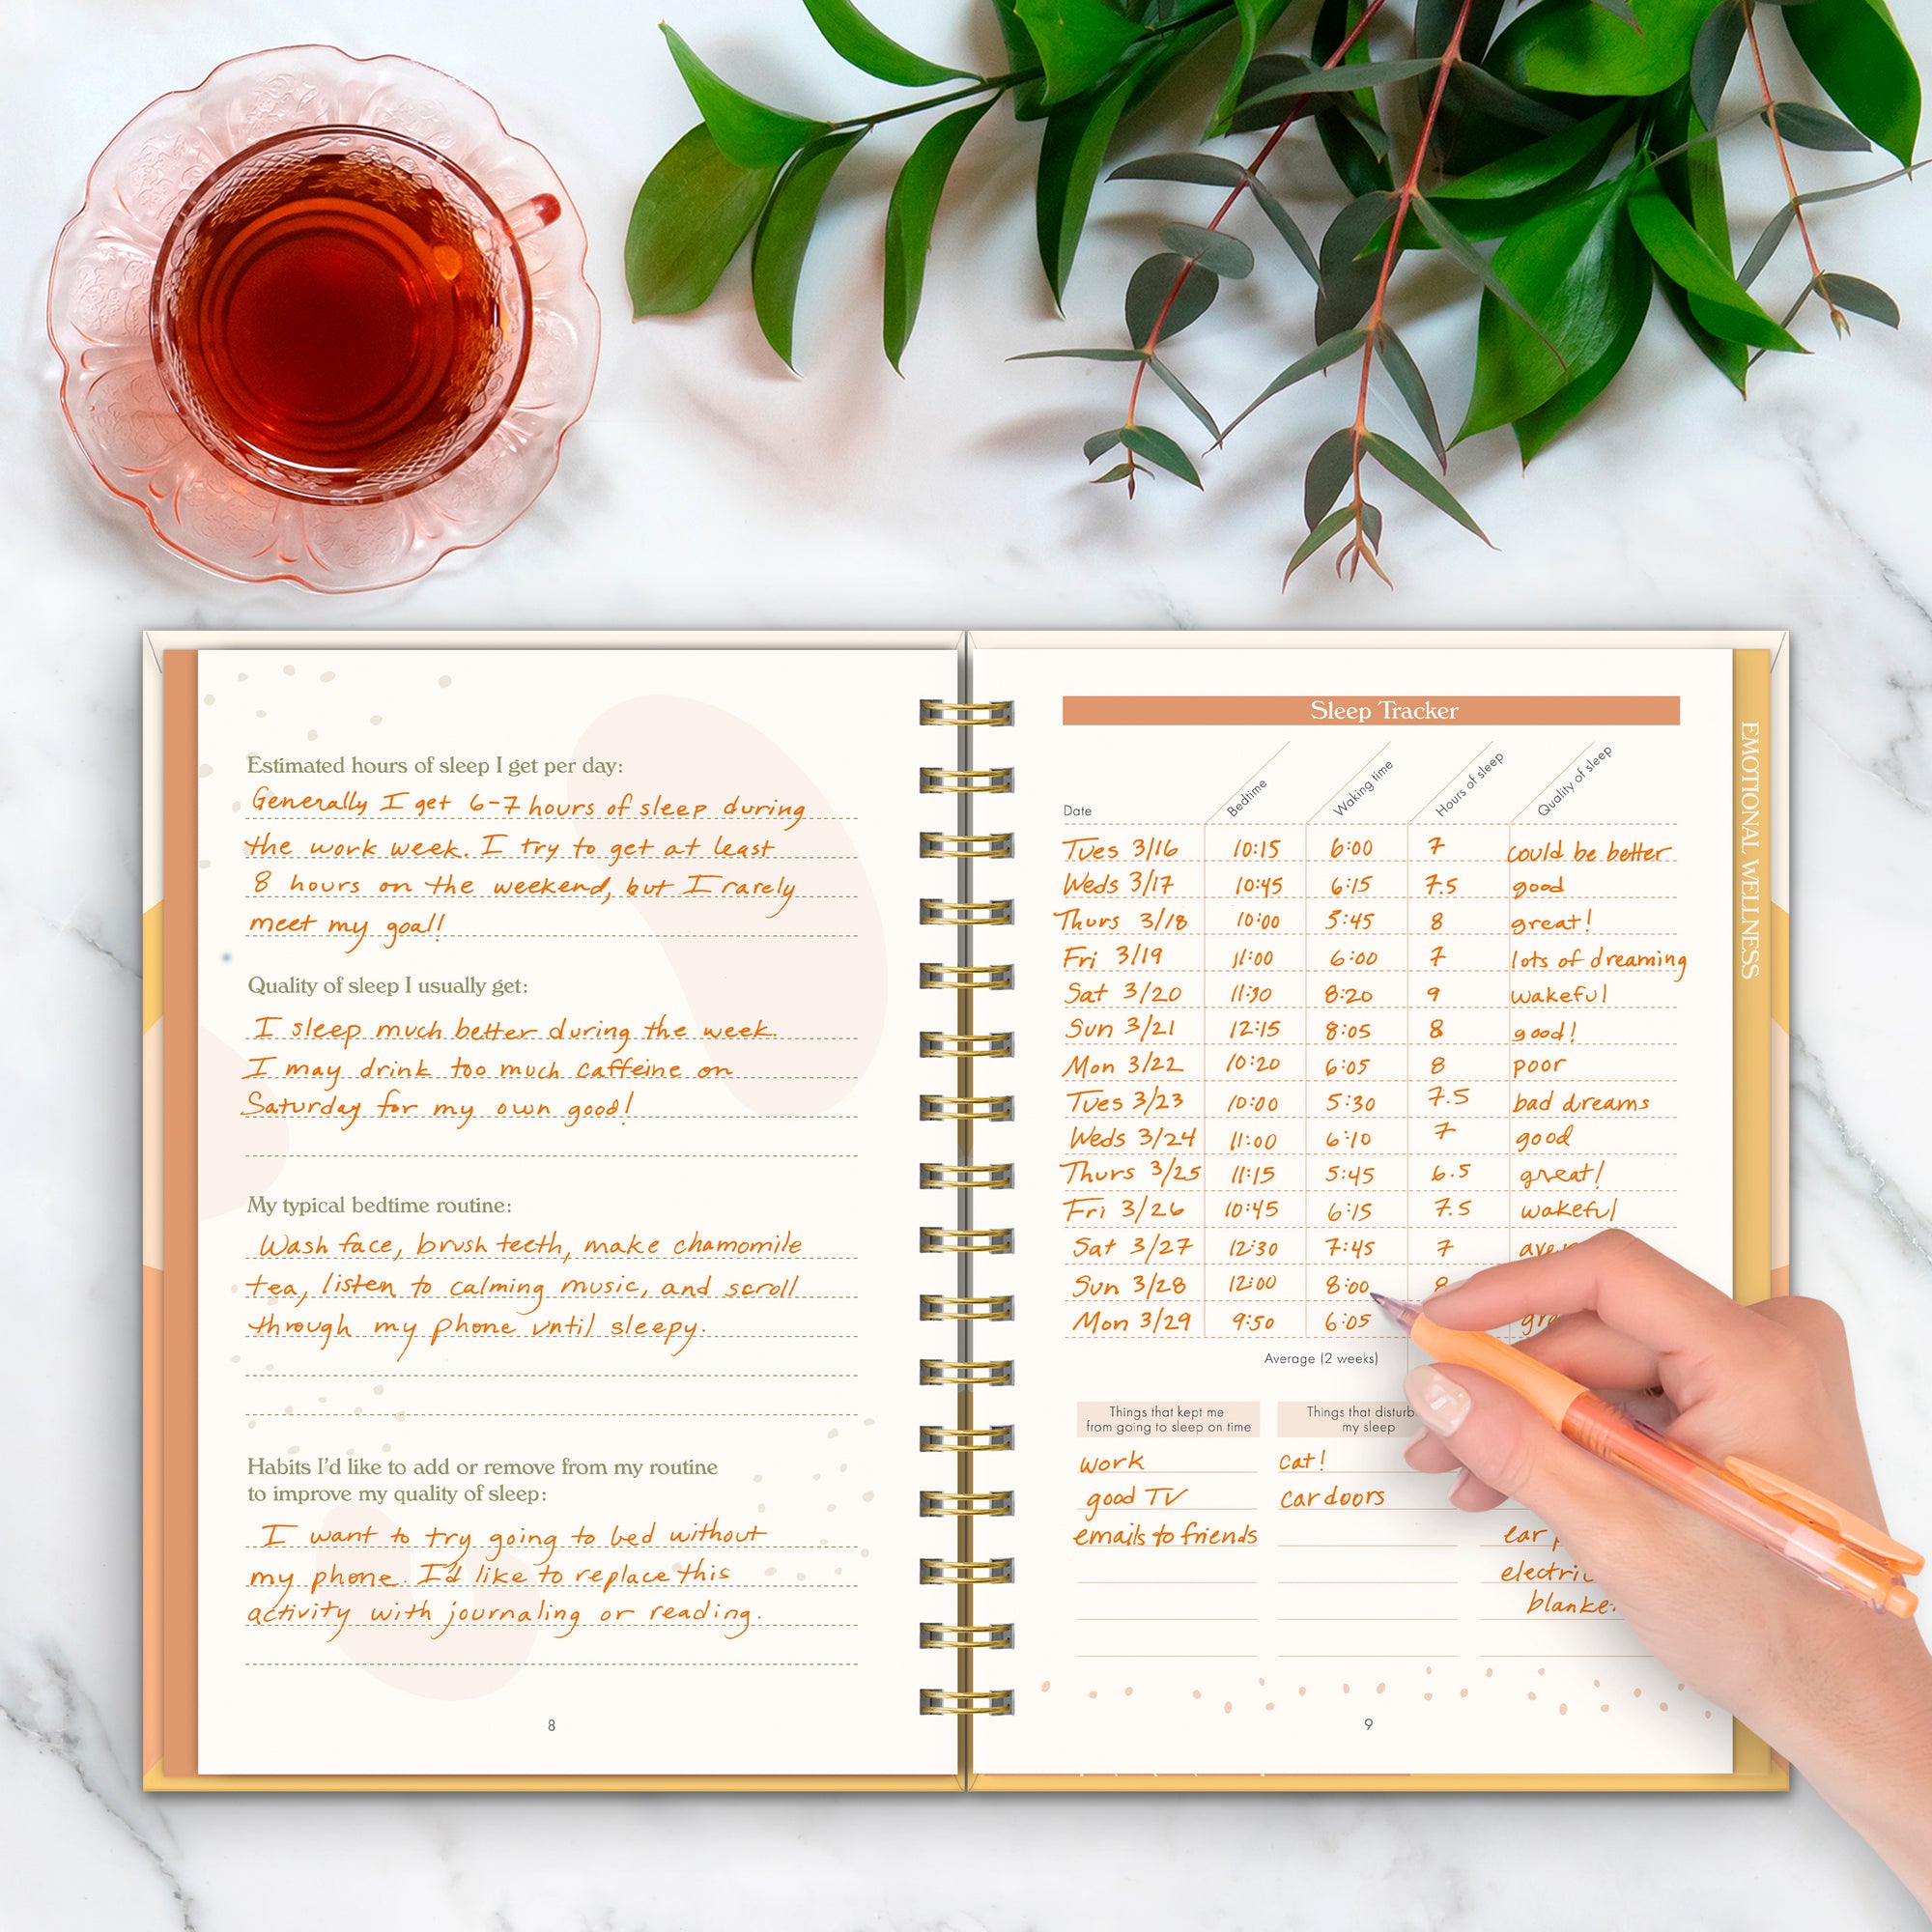 Estimated hours of sleep I get per day:
Generally I get 6-7 hours of sleep during
the work week. I try to get at least
8 hours on the weekend, but I rarely
meet my goal!
Quality of sleep I usually get:
I sleep much better during the week.
I may drink too much caffeine on
Saturday for my own good!
My typical bedtime routine:
Wash face, brush teeth, make chamomile
tea, listen to calming music, and scroll
through my phone until sleepy.
Habits I'd like to add or remove from my routine
to improve my quality of sleep:
I want to try going to bed without
my phone. I'd like to replace this
activity with journaling or reading.
8
Sleep Tracker
Date Bedtime Waking time Hours of sleep Quality of sleep
Tues 3/16 10:15 6:00 7 could be better
Weds 3/17 10:45 6:15 7.5 good
Thurs 3/18 10:00 5:45 8 great!
Fri 3/19 11:00 6:00 7 lots of dreaming
Sat 3/20 11:30 8:20 9 wakeful
Sun 3/21 12:15 8:05 8 good!
Mon 3/22 10:20 6:05 8 poor
Tues 3/23 10:00 5:30 7.5 bad dreams
Weds 3/24 11:00 6:10 7 good
Thurs 3/25 11:15 5:45 6.5 great!
Fri 3/26 10:45 6:15 7.5 wakeful
Sat 3/27 12:30 7:45 7
Sun 3/28 12:00 8:00
Mon 3/29 9:50 6:05
Average (2 weeks)
Things that kept me
from going to sleep on time
work
good TV
emails to friends
Things that disturb
my sleep
cat!
car doors
ear
electric
blanket
9
EMOTIONAL WELLNESS